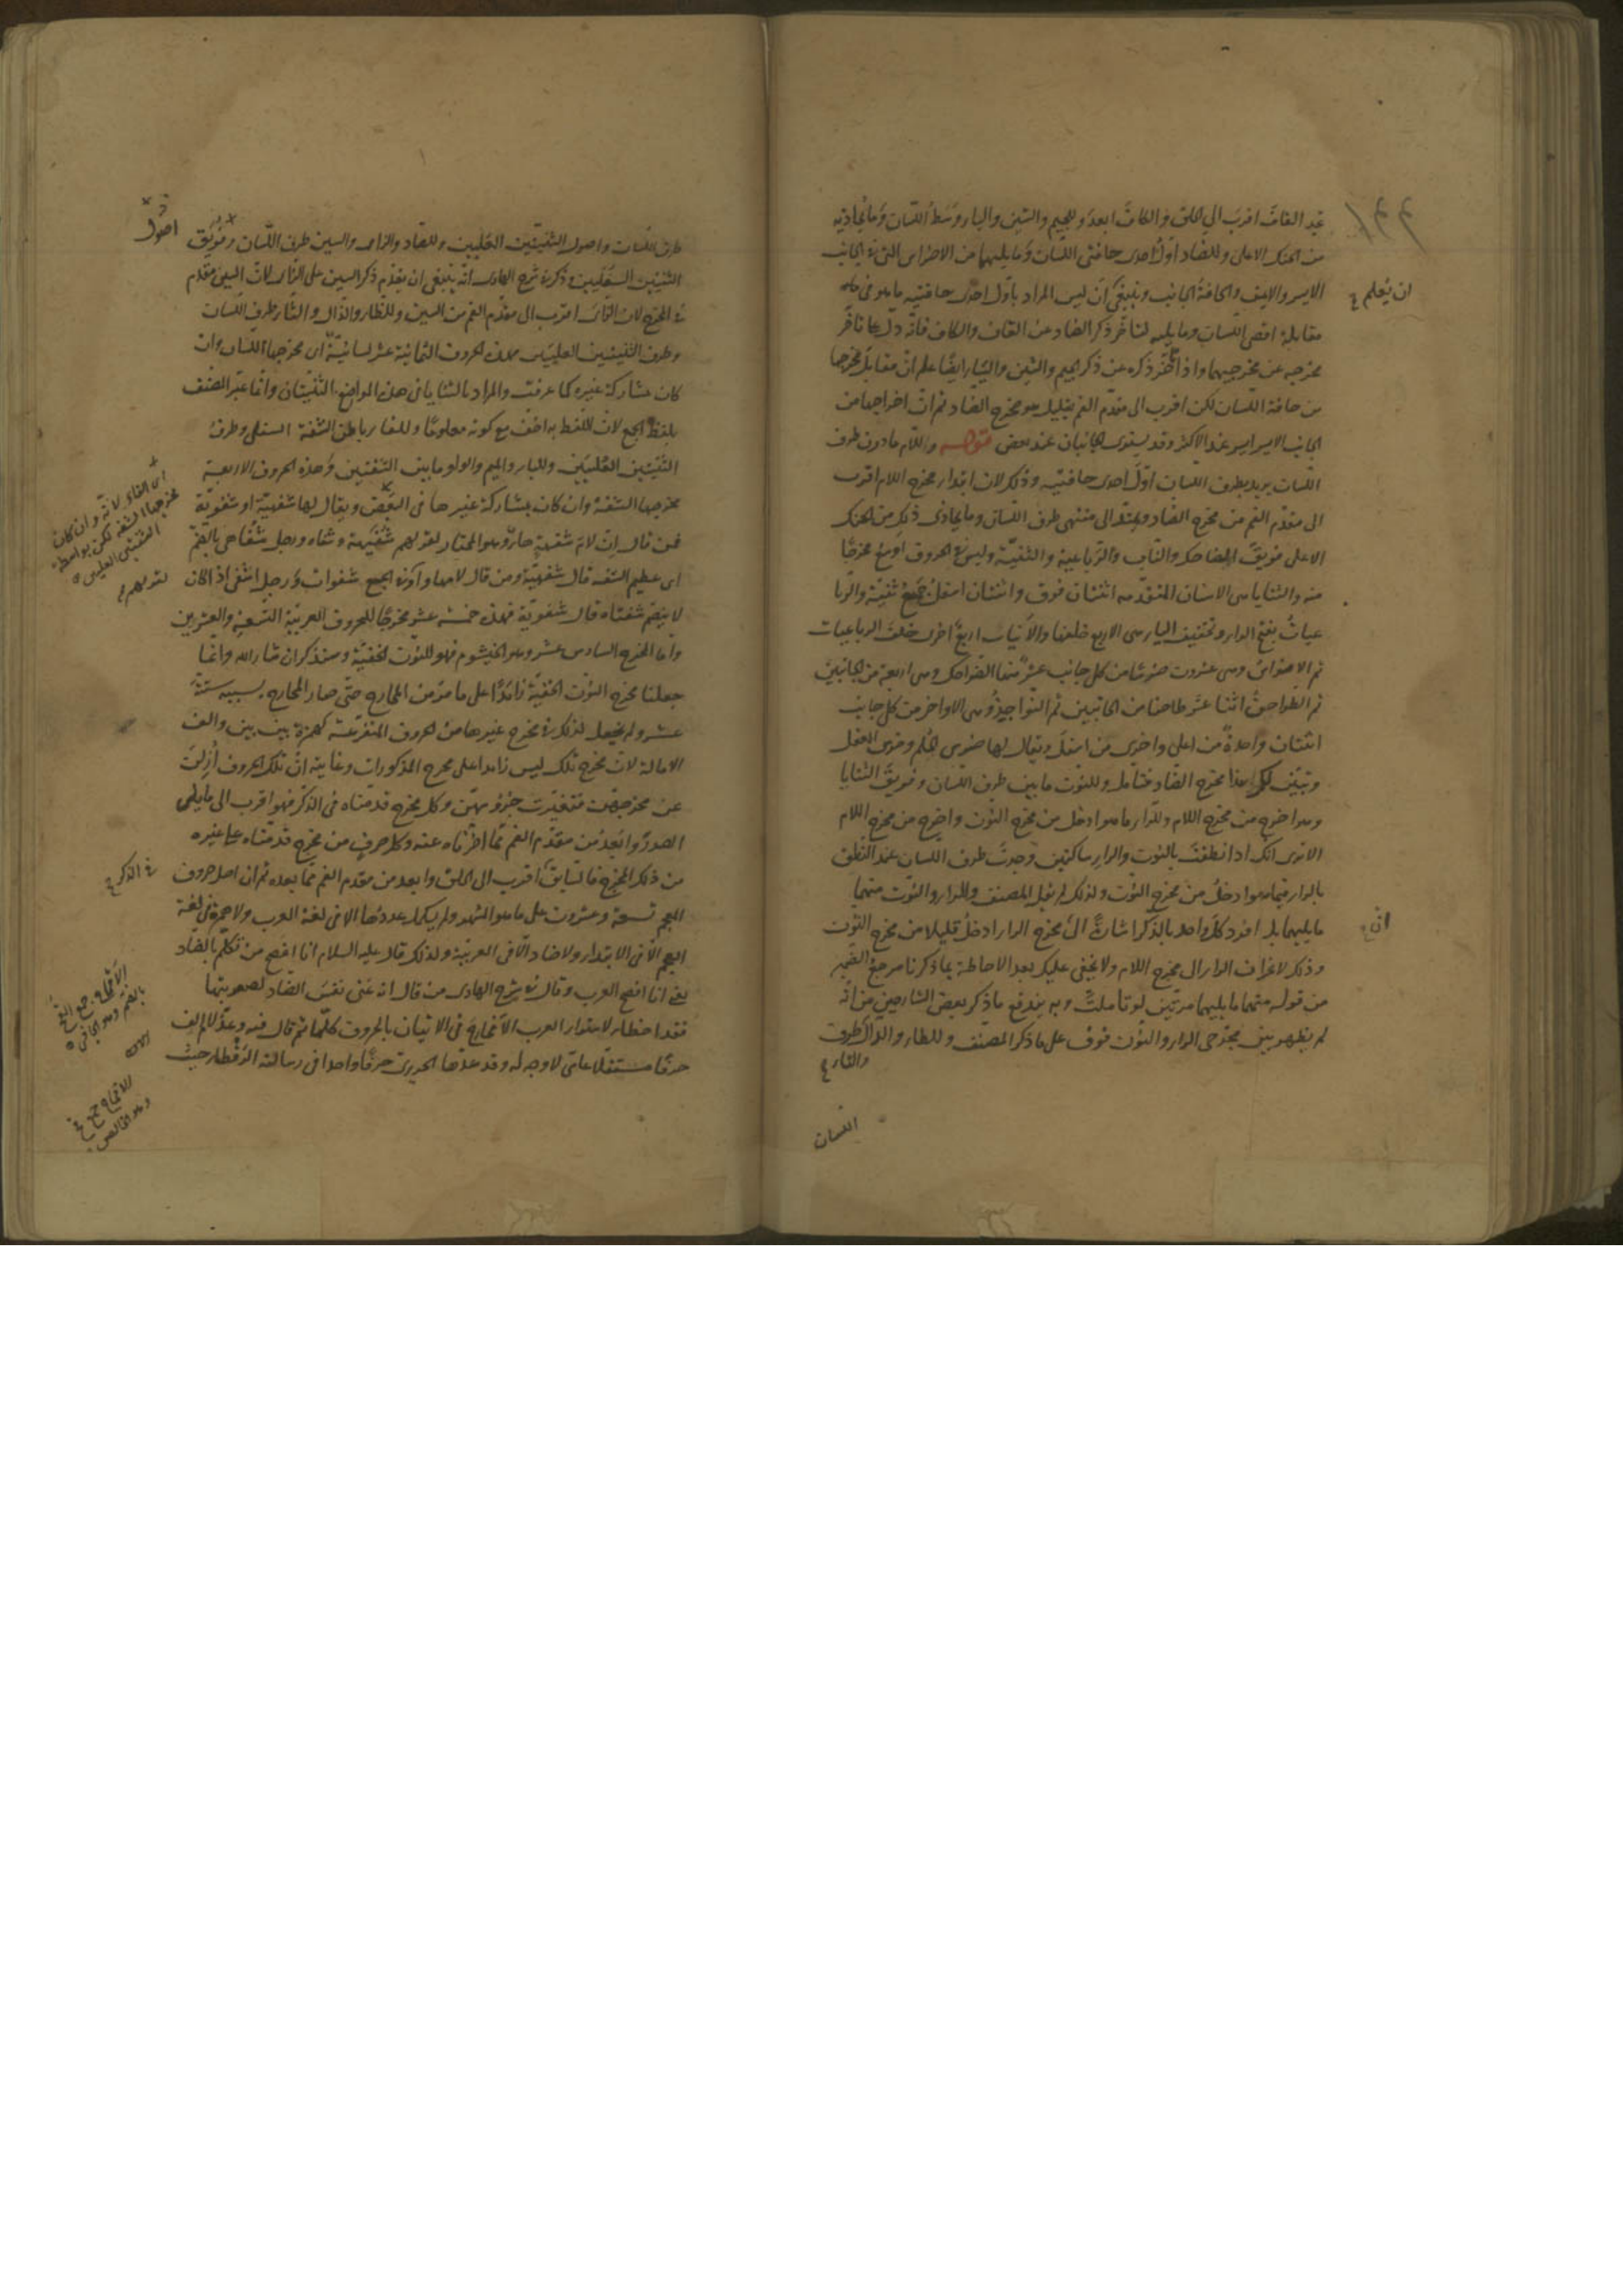 تجد القاف اقرب الى الحلق والكاف ابعد وللجيم والشين والياء وسط اللسان وما يحاذيه
من الحنك الاعلى وللضاد اول احدى حافتى اللسان وما يليهما من الاضراس التى فى الجانب
الايسر والايمن والحافة الجانب وينبغى ان ليس المراد باول احدى حافتيه ما هو فى
ان يعلم
مقابلة اقصى اللسان وما يليه لتاخر ذكر الضاد عن القاف والكاف فانه دل على تاخر
مخرجه عن مخرجيهما واذ تاخر ذكره عن ذكر الجيم والشين والياء ايضا علم ان مقابل مخرجها
من حافة اللسان لكن اقرب الى مقدم الفم بقليل هو مخرج الضاد ثم ان اخراجها من
الجانب الايسر ايسر عند الاكثر وقد يستوى الجانبان عند بعض قوله واللام ما دون طرف
اللسان يريد بطرف اللسان اول احدى حافتيه وذلك لان ابتداء مخرج اللام اقرب
الى مقدم الفم من مخرج الضاد ويمتد الى منتهى طرف اللسان وما يحاذى ذلك من الحنك
الاعلى فويق الضاحك والناب والرباعية والثنية وليس فى الحروف اوسع مخرجا
منه والثنايا هى الاسنان المتقدمه اثنتان فوق واثنتان اسفل جمع ثنية والربا
عيات بفتح الراء وتخفيف الياء هى الاربع خلفها والانياب اربع اخرى خلف الرباعيات
ثم الاضراس وهى عشرون ضرسا من كل جانب عشر منها الضواحك وهى اربعة من الجانبين
ثم الطواحن اثنا عشر طاحنا من الجانبين ثم النواجذ وهى الاواخر من كل جانب
اثنتان واحدة من اعلى واخرى من اسفل ويقال لها ضرس الحلم وضرس العقل
وتبين لك بهذا مخرج الضاد فتامل وللنون ما بين طرف اللسان وفويق الثنايا
وهو اخرج من مخرج اللام وللراء ما هو ادخل من مخرج النون واخرج من مخرج اللام
الا ترى انك اذا نطقت بالنون والراء ساكنين وجدت طرف اللسان عند النطق
بالراء فيما هو ادخل من مخرج النون ولذلك لم يقل المصنف وللراء والنون منهما
ما يليهما بل افرد كل واحد بالذكر اشارة الى مخرج الراء ادخل قليلا من مخرج النون
ان
وذلك لانحراف الراء الى مخرج اللام ولا يخفى عليك بعد الاحاطة بما ذكرنا مرجع الضمير
من قوله منهما ما يليهما مرتين لو تاملت وبه يندفع ما ذكر بعض الشارحين من انه
لم يظهر بين مخرجى الراء والنون فرق على ما ذكر المصنف وللطاء والدال طرف
والتاء
اللسان
طرف اللسان واصول الثنيتين العليين وللصاد والزاى والسين طرف اللسان وفويق
اصول
الثنيتين السفليين وذكر فى شرح الهادى انه ينبغى ان يقدم ذكر السين على الزاى لان السين مقدم
فى المخرج لان الزاى اقرب الى مقدم الفم من السين وللظاء والذال والثاء طرف اللسان
وطرف الثنيتين العليين فهذه الحروف الثمانية عشر لسانية اى مخرجها اللسان وان
كان بمشاركة غيره كما عرفت والمراد بالثنايا فى هذه المواضع الثنيتان وانما عبر المصنف
بلفظ الجمع لان اللفظ به اخف مع كونه معلوما وللفاء باطن الشفة السفلى وطرف
الثنيتين العليين وللباء والميم والواو ما بين الشفتين وهذه الحروف الاربعة
مخرجها الشفة وان كان بمشاركة غيرها فى البعض ويقال لها شفهية او شفوية
اى الفاء لانه وان كان
مخرجها الشفة لكن بواسطة
الثنيتين العليين
فمن قال ان لام شفة هاء وهو المختار لقولهم شفيهة وشفاه ورجل شفاهى بالضم
لقولهم
اى عظيم الشفة قال شفهية ومن قال لامها واو فى الجمع شفوات ورجل اشفى اذا كان
لا ينضم شفتاه قال شفوية فهذه خمسة عشر مخرجا للحروف العربية التسعة والعشرين
واما المخرج السادس عشر وهو الخيشوم فهو للنون الخفية وسنذكر ان شاء الله وانما
جعلنا مخرج النون الخفية زائدا على ما مر من المخارج حتى صار المخارج بسببه ستة
عشر ولم يجعل لذكر مخرج غيرها من الحروف المتفرعة كهمزة بين بين والف
الامالة لان مخرج تلك ليس زائدا على مخرج المذكورات وغايته ان تلك الحروف ازيلت
عن مخرجهن فتغيرت جروسهن وكل مخرج قدمناه فى الذكر فهو اقرب الى ما يلى
الصدر وابعد من مقدم الفم مما اخرناه عنه وكل حرف من مخرج قدمناه على غيره
من ذلك المخرج فالسابق اقرب الى الحلق وابعد من مقدم الفم مما بعده ثم ان اصل حروف
فى الذكر
المعجم تسعة وعشرون على ما هو المشهور ولم يكمل عددها الا فى لغة العرب ولا همزة فى لغة
العجم الا فى الابتداء ولا ضاد الا فى العربية ولذلك قال عليه السلام انا افصح من تكلم بالضاد
يعنى انا افصح العرب وقال فى شرح الهادى من قال انه عنى نفس الضاد لصعوبتها
فقد اخطا لاستواء العرب الاقحاح فى الاتيان بالحروف كلها ثم قال فيه وعد لام الف
حرفا مستقلا عامى لا وجه له وقد عدها الحريرى حرفا واحدا فى رسالته الرقطاء حيث